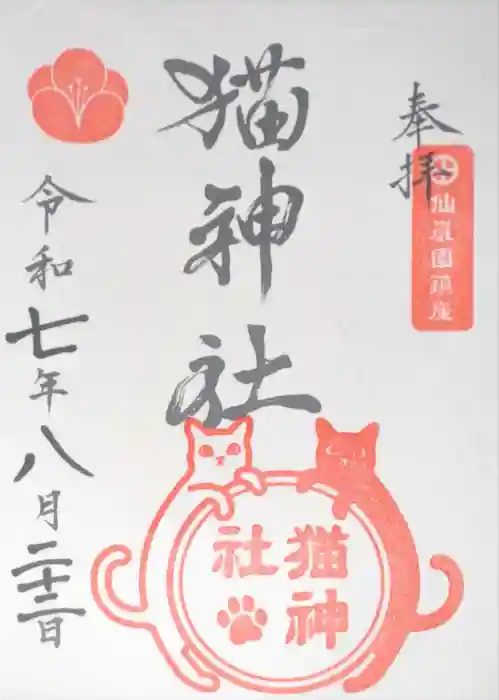 奉拝
仙巌園鎮座
猫神社
猫神社
令和七年八月二十二日